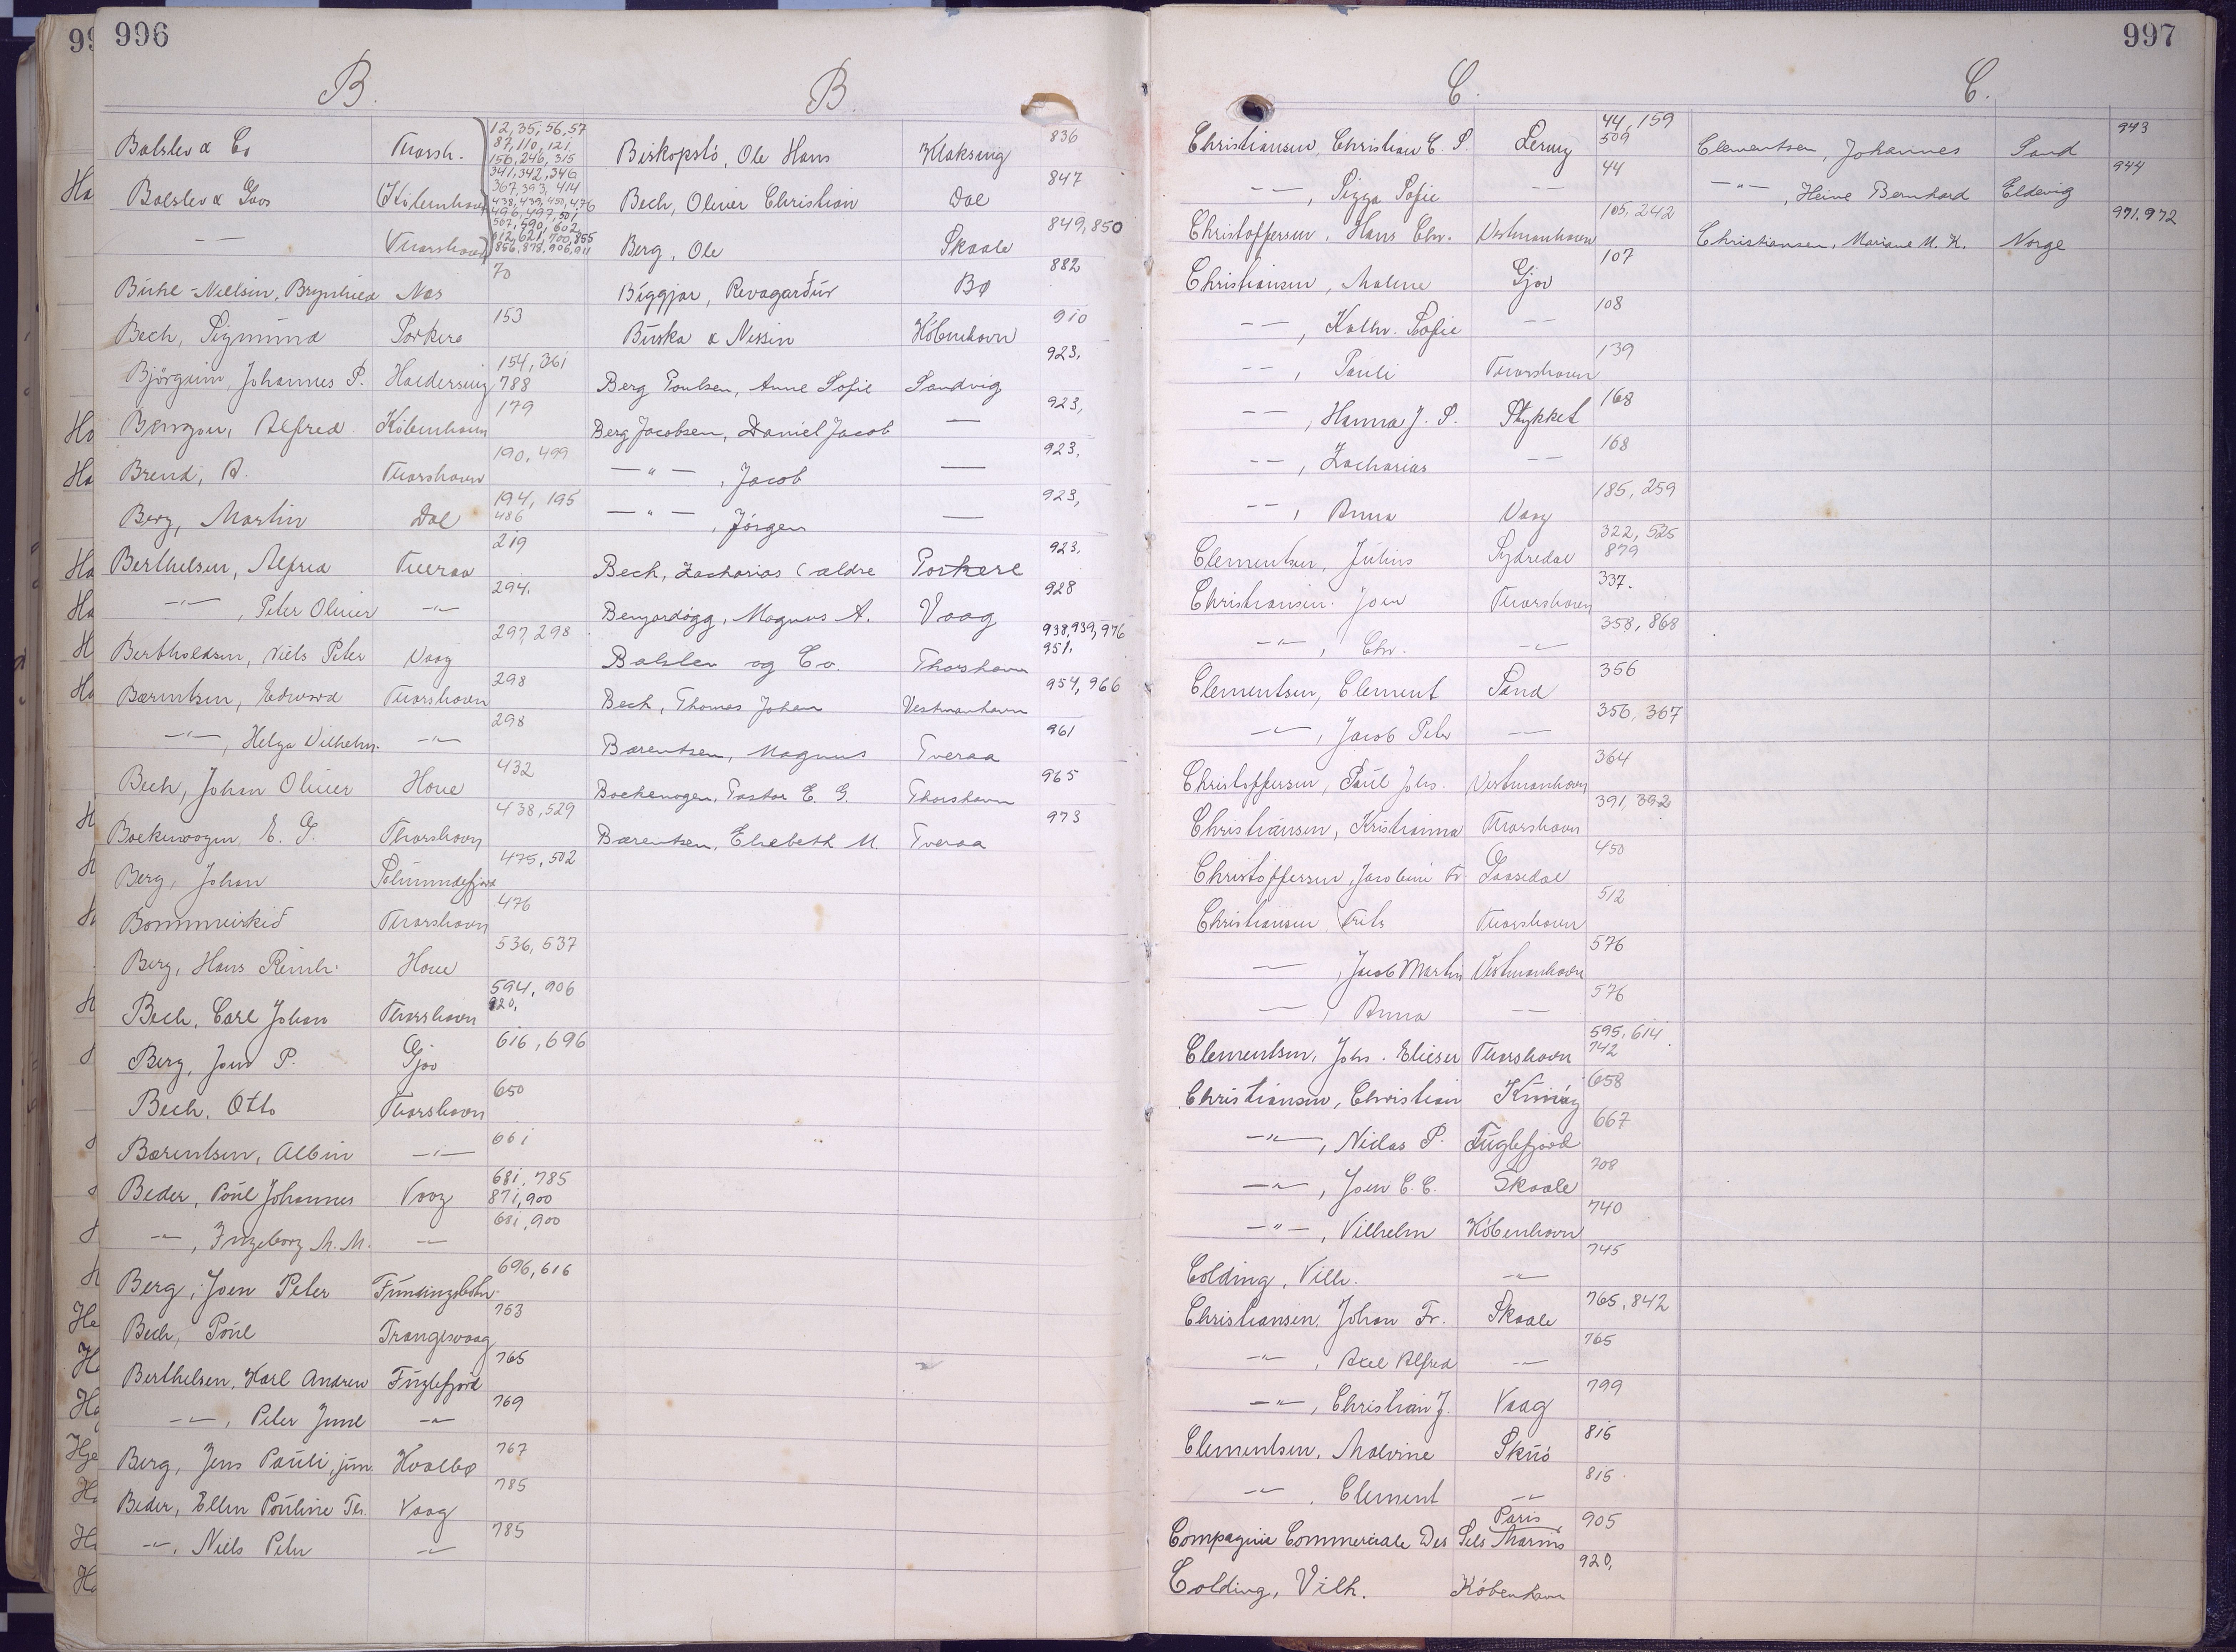 996
B.
B.
Balslev & Co Thorsh. 12, 35, 56, 57
87, 110, 121
156, 246, 315
341, 342, 346
Balslev & Goos Köbenhavn 367, 393, 414
438, 439, 450, 476
496, 497, 501
507, 590, 602
— — Thorshavn 612, 621, 700, 855
856, 878, 906, 911
Nielsen, Brynhild Nes 70
Bech, Sigmund Porkere 153
Johannes P. Haldersvig 154, 361
788
Alfred Köbenhavn 179
Brend, A. Thorshavn 190, 499
Berg, Martin Dal 194, 195
486
Berthelsen, Alfred Tveraa 219
—"—, Peter Oliver —"— 294.
Bertholdsen, Niels Peter Vaag 297, 298
Bærentsen, Edward Thorshavn 298
—"—, Helga Vilhelm. —"— 298
Bech, Johan Oliver Hove 432
E. G. Thorshavn 438, 529
Berg, Johan 475, 502
Thorshavn 476
Berg, Hans Reinh. Hove 536, 537
Bech, Carl Johan Thorshavn 594, 906
920,
Berg, Joen P. Gjov 616, 696
Bech, Otto Thorshavn 650
Bærentsen, Albin —"— 661
Beder, Poul Johannes Vaag 681, 785
871, 900
—"—, Ingeborg M. M. —"— 681, 900
Berg, Joen Peter Fundingsbotn 696, 616
Bech, Poul Trangisvaag 763
Berthelsen, Karl Andrew Fuglefjord 765
—"—, Peter Juul —"— 769
Berg, Jens Pauli, jun. Hvalbø 767
Beder, Ellen Pouline Th. Vaag 785
—"—, Niels Peter —"— 785
Biskopstö, Ole Hans Klaksvig 836
Bech, Oliver Christian Dal 847
Berg, Ole Skaale 849, 850
Biggjar, Revagarður Bø 882
Buska & Nissin Köbenhavn 910
Berg Poulsen, Anne Sofie Sandvig 923,
Berg Jacobsen, Daniel Jacob — 923,
—"—, Jacob — 923,
—"—, Jörgen — 923,
Bech, Zacharias (ældre Porkere 923,
Magnus A. Vaag 928
Balslev og Co. Thorshavn 938, 939, 976
951,
Bech, Thomas Johan Vestmanhavn 954, 966
Bærentsen, Magnus Tveraa 961
Pastor E. G. Thorshavn 965
Bærentsen, Elsebeth M. Tveraa 973
997
C.
C.
Christiansen, Christian C. S. Lervig 44, 159
509
— —, Sigga Sofie — — 44
Christoffersen, Hans Chr. Vestmanhavn 105, 242
Christiansen, Malene Gjov 107
— —, Kathr. Sofie — — 108
— —, Pauli Thorshavn 139
— —, Hanna J. S. Stykket 168
— —, Zacharias — — 168
— —, Anna Vaag 185, 259
Clementsen, Julius Sydredal 322, 525
879
Christiansen, Joen Thorshavn 337.
—"—, Chr. —"— 358, 868
Clementsen, Clement Sand 356
—"—, Jacob Peter — — 356, 367
Christoffersen, Paul Johs. Vestmanhavn 364
Christiansen, Kristianna Thorshavn 391, 392
Christoffersen, Jacobine Fr. Gaasedal 450
Christiansen Frits Thorshavn 512
—, Jacob Martin Vestmanhavn 576
—, Anna — — 576
Clementsen, Johs. Elieser Thorshavn 595, 614
742
Christiansen, Christian Kunöy 658
—"—, Niclas P. Fuglefjord 667
—"—, Joen C. C. Skaale 708
—"—, Vilhelm Köbenhavn 740
Colding, Vilh. —"— 745
Christiansen, Johan Fr. Skaale 765, 842
—"—, Axel Alfred —"— 765
—"—, Christian J. Vaag 799
Clementsen, Malvine Skuö 815
—"—, Clement —"— 815
Compagnie Commerciale Des Sels Marins Paris 905
Colding, Vilh. Köbenhavn 920,
Clementsen, Johannes Sand 943
—"—, Heine Bernhard Eldevig 944
Christiansen, Mariane M. K. Norge 971, 972